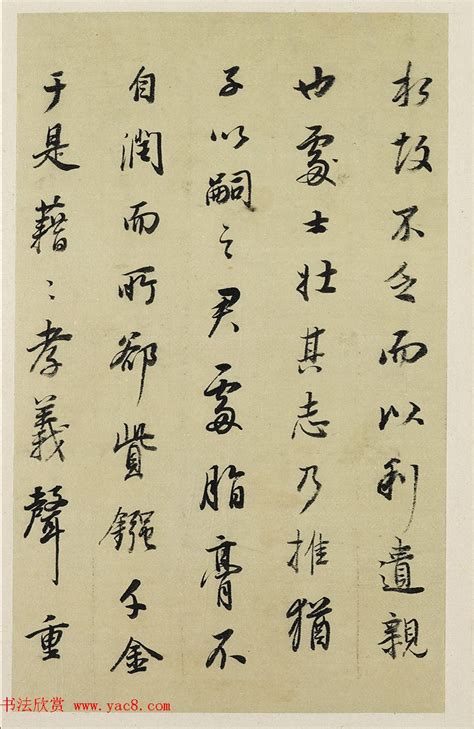 故不乏而以利遺親
也處士壯其志乃推猶
子以嗣之君處脂膏不
自潤而所卻貲鏹千金
于是藉〻孝義聲重
书法欣赏 www.yac8.com